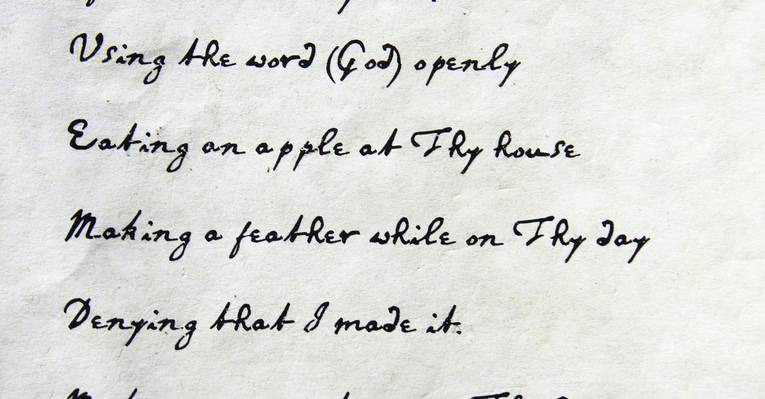 Using the word (God) openly
Eating an apple at Thy house
Making a feather while on Thy day
Denying that I made it.